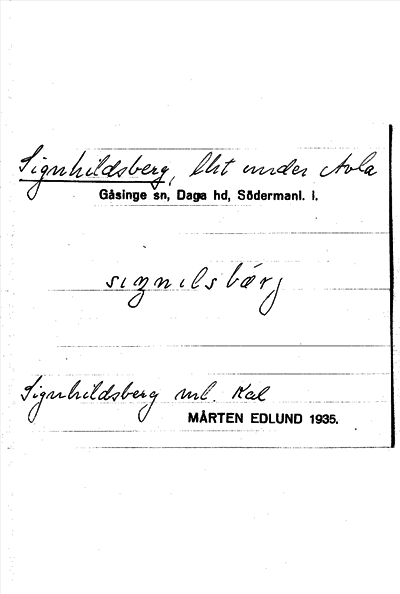 Signhildsberg, lht under Avla
Gåsinge sn, Daga hd, Södermanl. l.
sıŋnılsbærj
Signhildsberg ml. Kal
MÅRTEN EDLUND 1935.